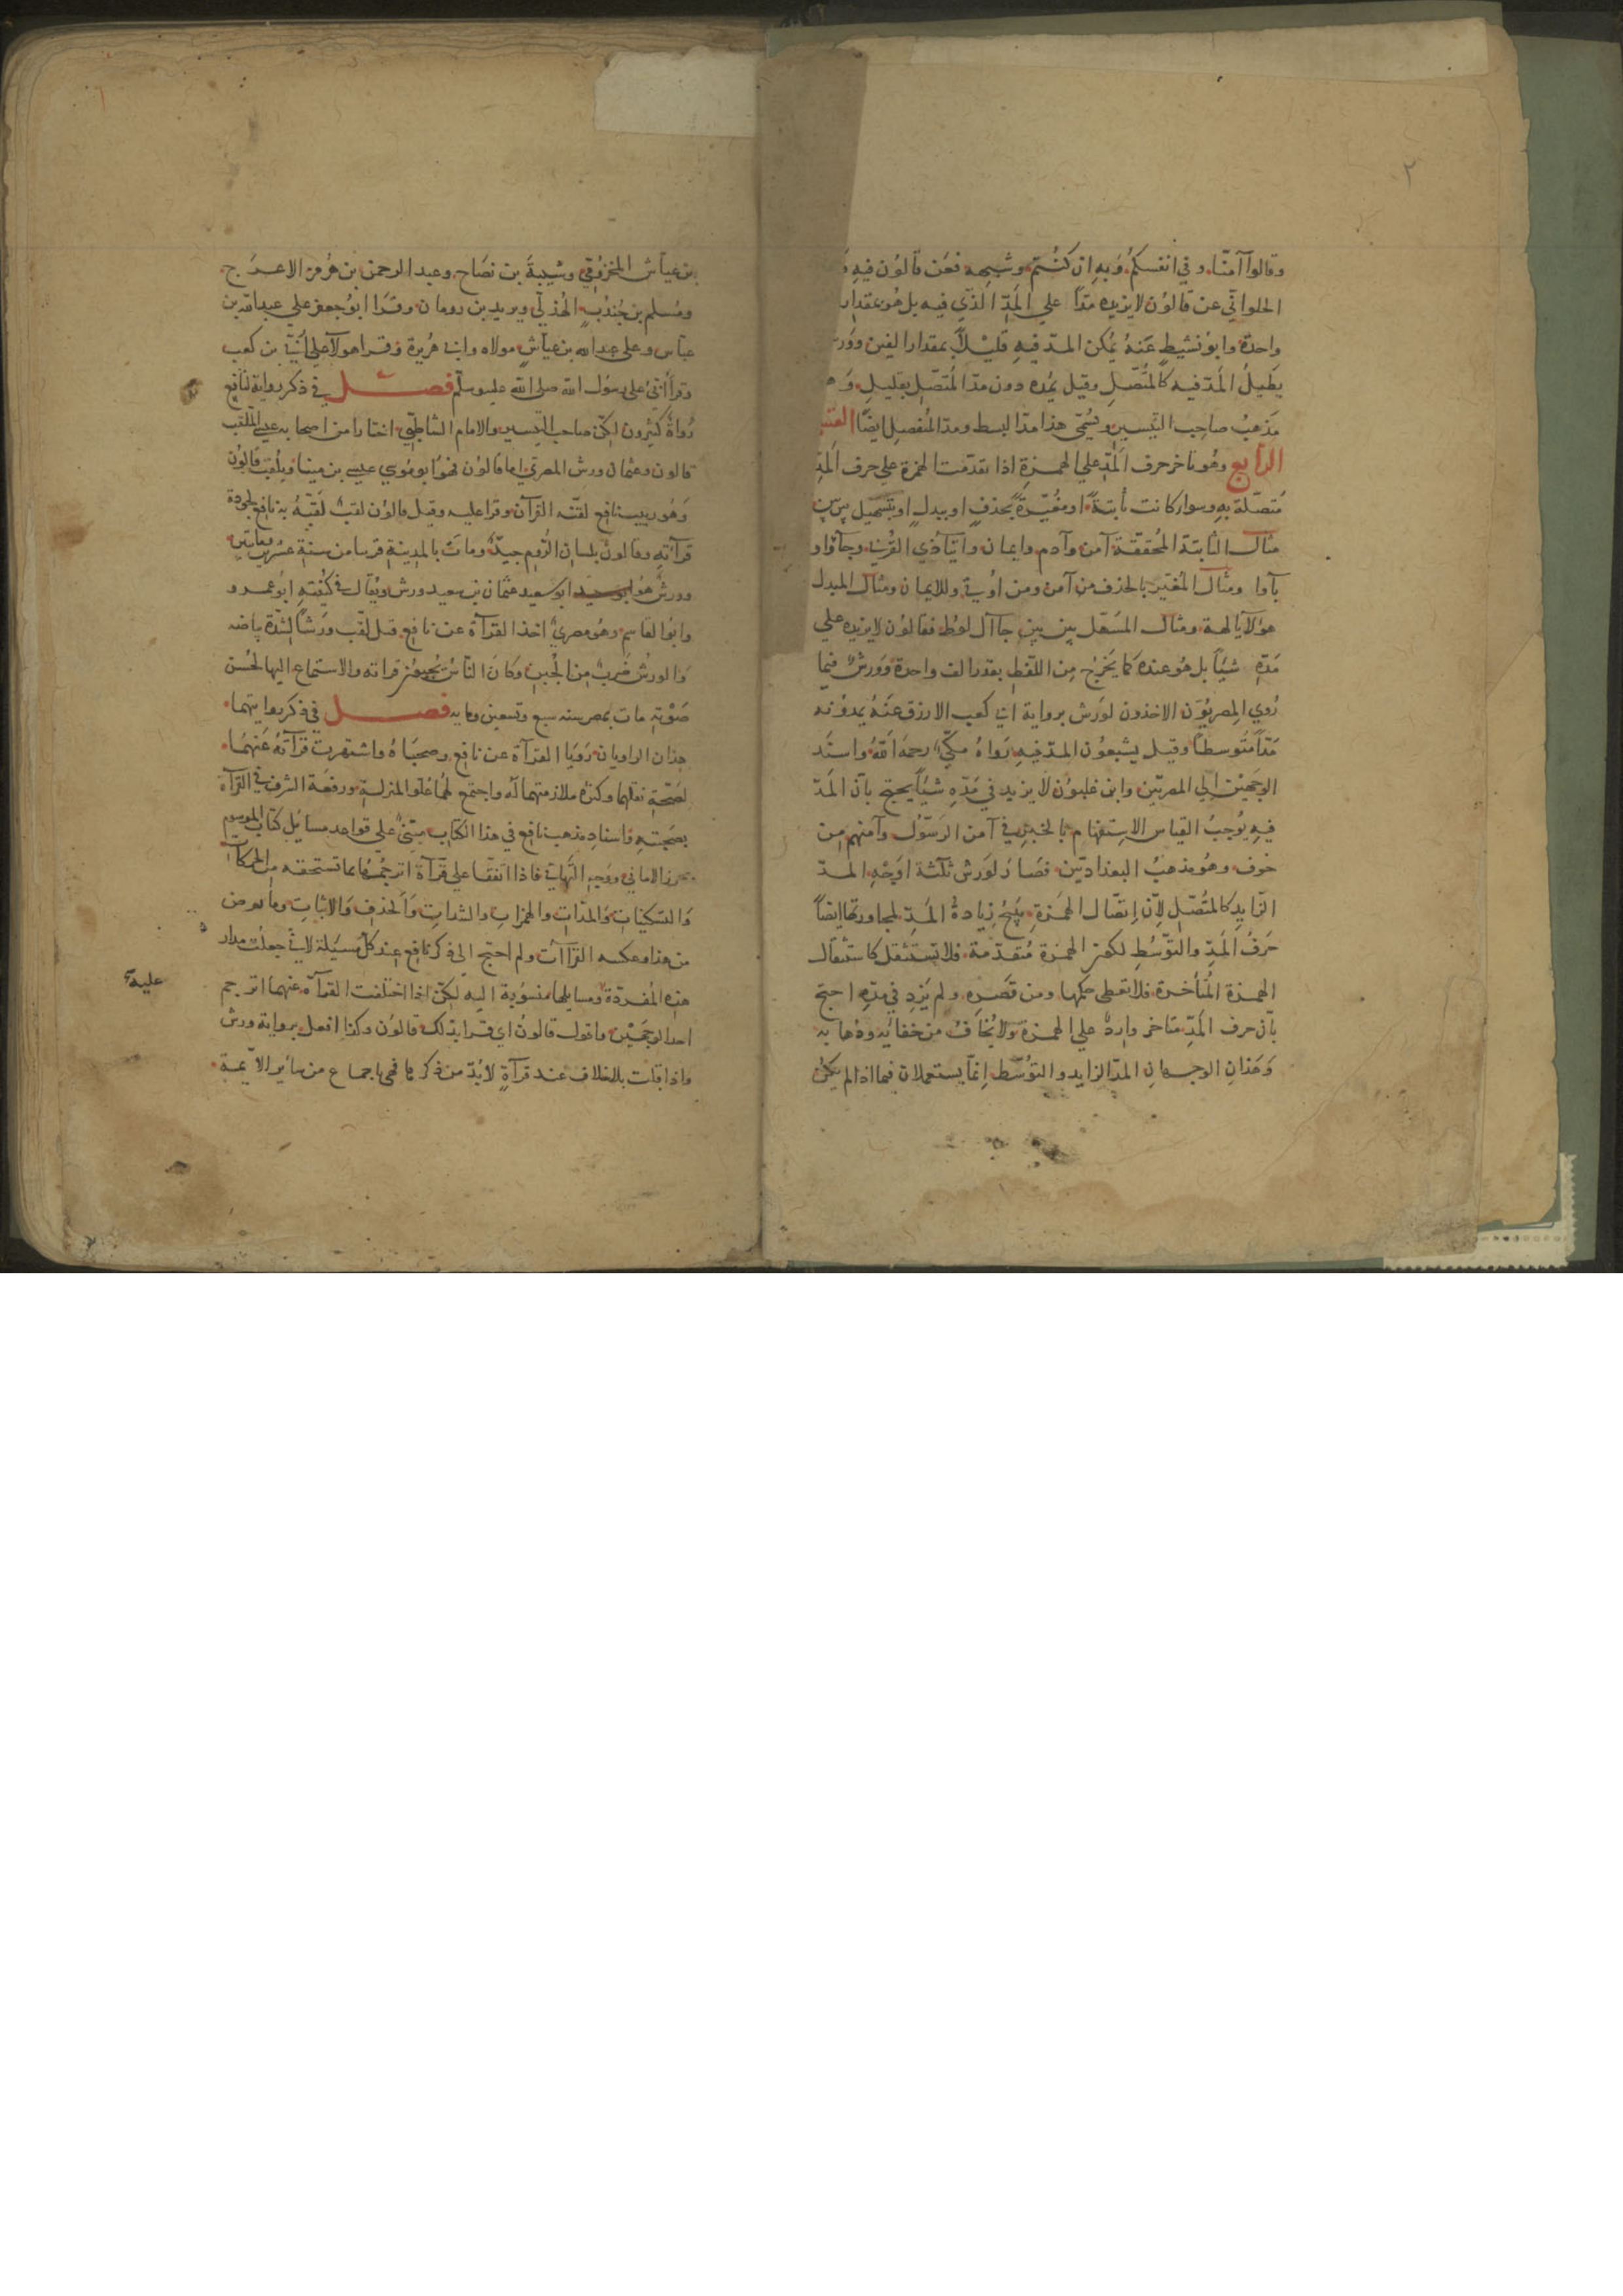 ٢
وقالوا آمنّا وفي انفسكم وبه ان كنتم وشبهه فعن قالون فيه
الحلواني عن قالون لا يزيده مدّاً على المدّ الذي فيه بل هو بمقدار
واحدة وابو نشيط عنه يمكن المدّ فيه قليلاً بمقدار الفين وورش
يطيل المدّ فيه كالمتّصل وقيل يمده دون مدّ المتّصل بقليل
مذهب صاحب التيسير ويسمّى هذا مدّ البسط ومدّ المنفصل ايضاً
الرابع وهو تاخر حرف المدّ على الهمزة اذا تقدّمت الهمزة على حرف المدّ
متصّلة به وسوا كانت ثابتة او مغيّرة بحذف او ببدل او بتسهيل بين بين
مثال الثابتة المحققّة آمن وآدم وايمان وايتآ ذي القربى وجآؤا و
بآوا ومثال المغيّر بالحذف من آمن ومن اوتي وللايمان ومثال المبدل
هؤلآ يالهة ومثال المسهّل بين بين جآ آل لوط فقالون لا يزيده على
مدّه شيأً بل هو عنده كما يخرج من اللفظ بقدر الف واحدة وورش فيما
روي المصريّون الاخذون لورش برواية ابي يعقوب الازرق عنه يمدّونه
مدّاً متوسطاً وقيل يشبعون المدّ فيه رواه مكّي رحمه الله واسند
الوجهين الي المصريّين وابن غلبون لا يزيد في مدّه شيأً يحتج بأنّ المدّ
فيه يوجب القباس الاستفهام بالخبر في آمن الرسول وآمنهم من
خوف وهو مذهب البغداديّين فصار لورش ثلثة اوجه المدّ
الزايد كالمتّصل لأنّ اتصّال الهمزة يبيح زيادة المدّ لمجاورتها ايضاً
حرف المدّ والتوّسط لكون الهمزة متقدّمة فلا تستثقل كاستثقال
الهمزة المتأخرة فلا تعطى حكمها ومن قصره ولم يزد في مدّه احتج
بأنّ حرف المدّ متاخر وارد على الهمزة ولا يخاف من خفائه وذهابه
وهذان الوجهان المدّ الزايد والتوسّط انمّا يستعملان فيما اذا لم يكن
بن عيّاش المخزومي وشيبة بن نصاح وعبد الرحمن بن هرمز الاعرج
ومسلم بن جندب الهذلّي ويزيد بن رومان وقرا ابو جعفر على عبد الله بن
عبّاس وعلى عبد الله بن عيّاش مولاه وابي هريرة وقرا هولآ على ابيّ بن كعب
وقرأ ابيّ على رسول الله صلى الله عليه وسلّم فصل في ذكر رواية نافع
رواة كثيرون لكن صاحب التيسير والامام الشاطبي اختارا من اصحابه عيسى الملّقب
قالون وعثمان ورش المصري اما قالون فهو ابو موسي عيسي بن مينا ويلقب قالون
وهو ربيب نافع لقنّه القرآن وقرا عليه وقيل قالون لقب لقّبه به نافع لجودة
قرآته وقالون بلسان الروم جيّد ومات بالمدينة قريبا من سنة عشرين ومايتين
وورش هو ابو سعيد عثمان بن سعيد ورش ويقال في كنيته ابو عمرو
وابو القاسم وهو مصري اخذ القرآة عن نافع قيل لقّب ورشاً لشدّة بياضه
والورش ضرب من الجبن وكان الناس يحبون قراته والاستماع اليها لحسن
صوته مات بمصر سنه سبع وتسعين ومايه فصل في ذكر روايتهما
هذان الراويان رويا القرآة عن نافع وصحباه واشتهرت قرآته عنهما
لصّحة نقلهما وكثرة ملازمتهما له واجتمع لهما علّو المنزلة ورفعة الشرف في القرآة
بصحبته واسناد مذهب نافع في هذا الكتاب مبتنى على قواعد مسائل كتاب الموسوم
بحرز الاماني ووجه التهاني فاذا اتّفقا على قرآة اترجمها بما تستحقه من الحركات
والتسكينات والمدّات والهمزات والشدات والحذف والاثبات وما عوض
من هذا وعكسه القرآآت ولم احتج الى ذكر نافع عند كلّ مسئلة لانّي جعلت مدار
هذه المفردة ومسايلها منسوبة اليه لكنّ اذا اختلفت القرآة عنهما اترجم
عليه
احد الوجهين واقول قالون اي قرا بذلك قالون وكذا افعل برواية ورش
واذا قلت بلا خلاف عند قرآةٍ لا بدّ من ذكرها فهي باجماع من سائر الائمة